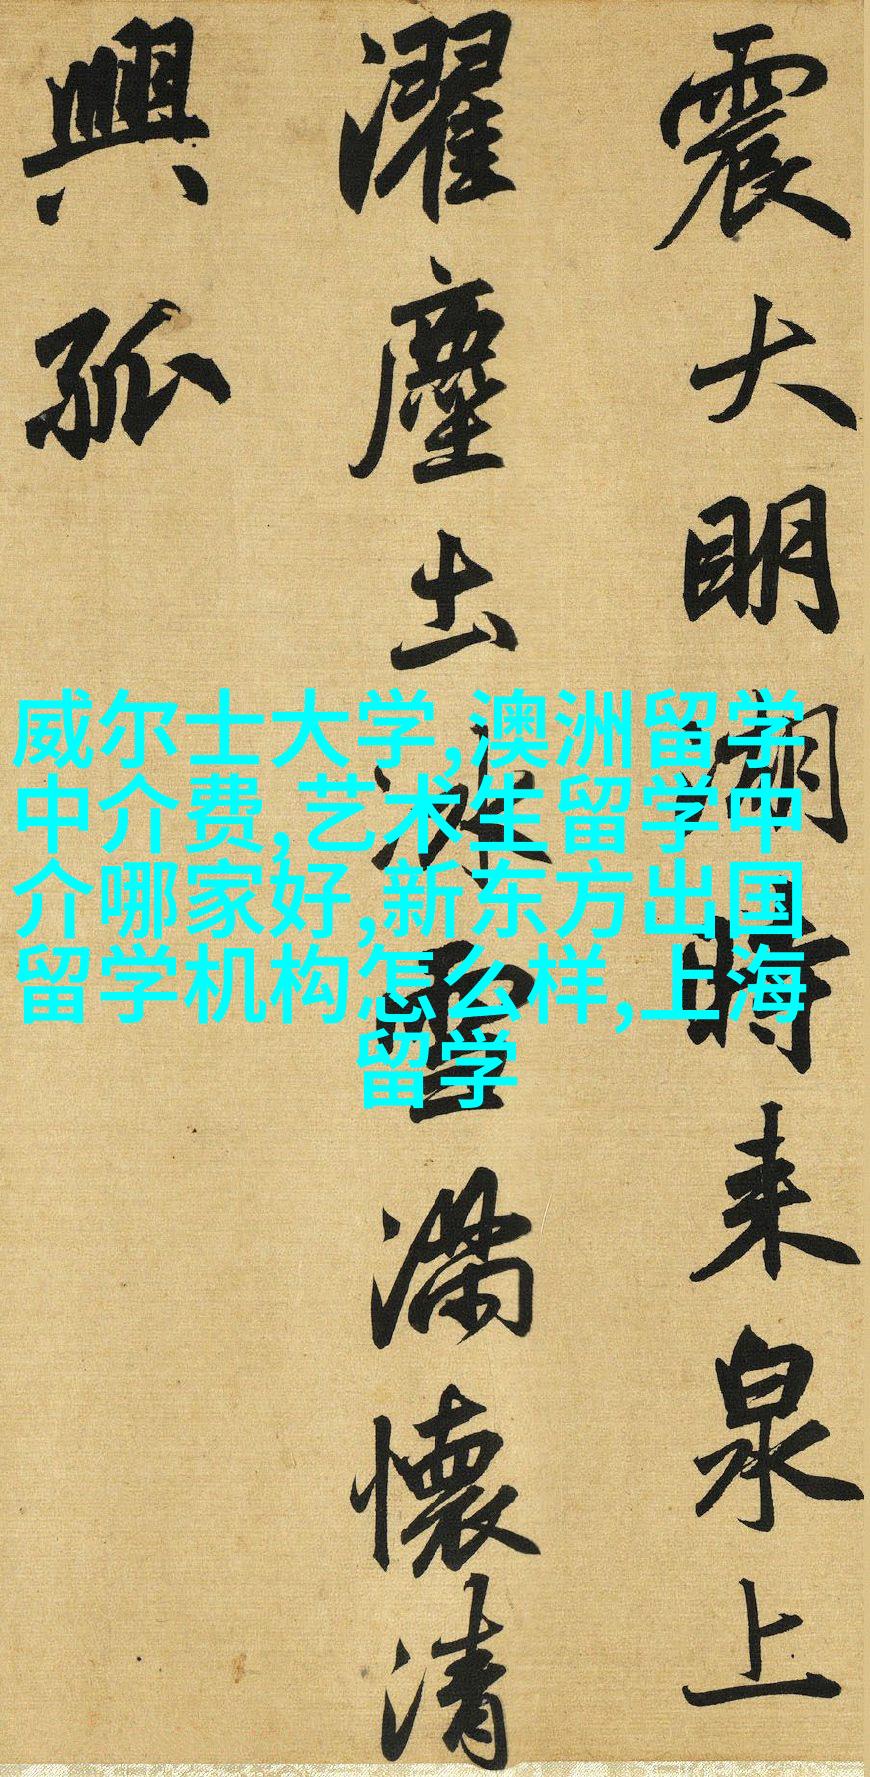 震大明湖時来泉上
濯塵土冰雪滿懷清
興孤
威尔士大学,澳洲留学
中介费,艺术生留学中
介哪家好,新东方出国
留学机构怎么样,上海
留学